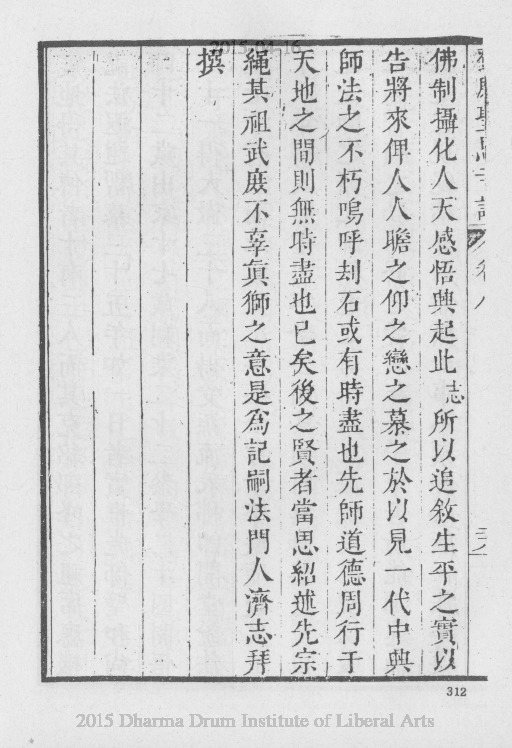 佛制攝化人天感悟與起此志所以追敘生平之實以
告將來俾人人瞻之仰之戀之慕之於以見一代中興
師法之不朽嗚呼刦石或有時盡也先師道德周行于
天地之間則無時盡也已矣後之賢者當思紹述先宗
繩其祖武庶不辜眞獅之意是爲記嗣法門人濟志拜
撰
2015-04-16
312
2015 Dharma Drum Institute of Liberal Arts